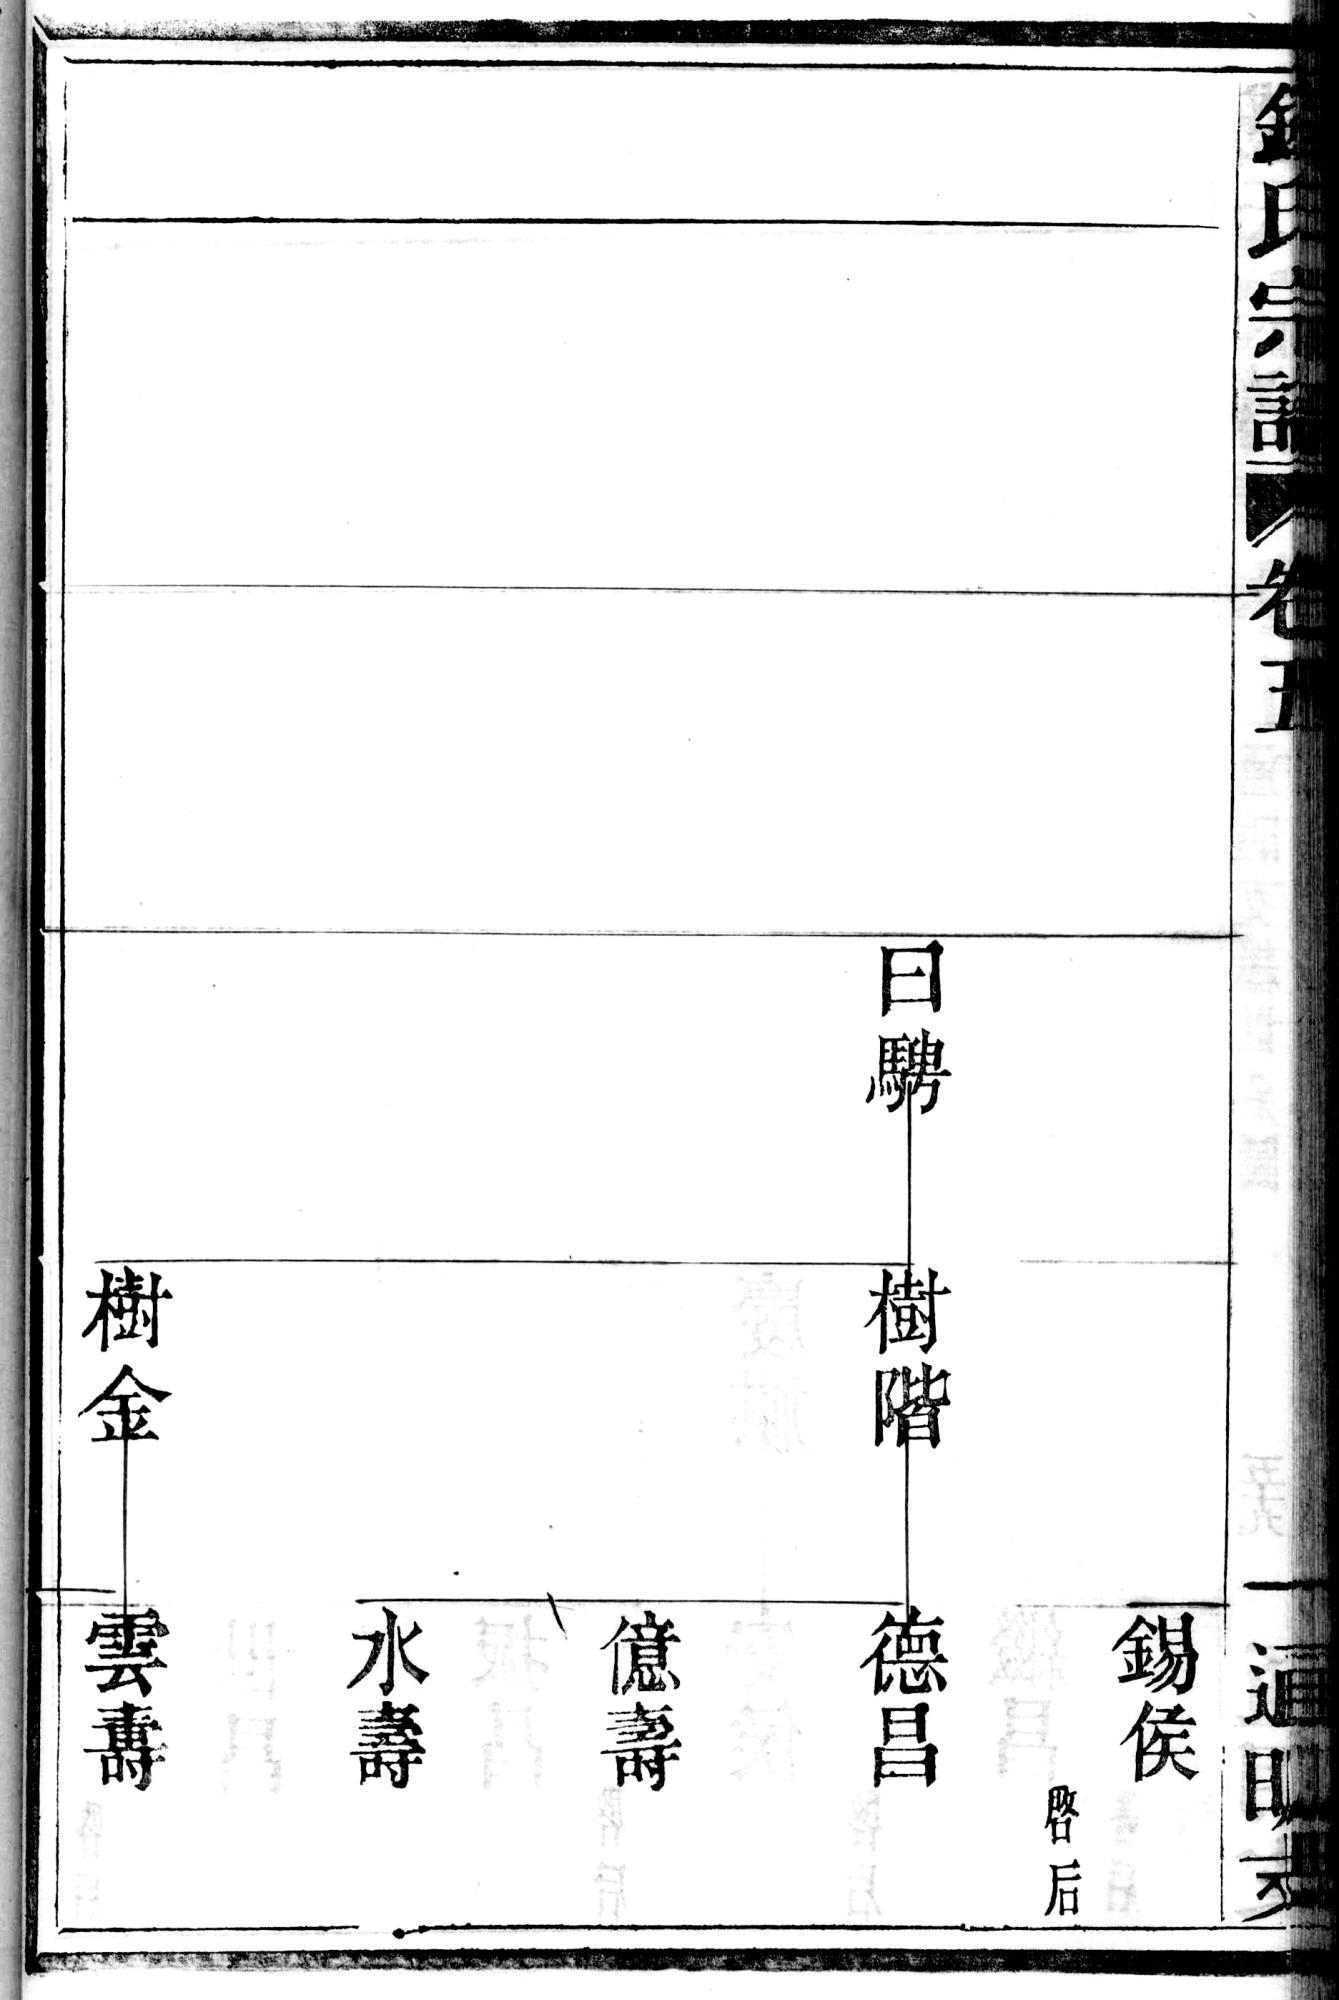 氏宗譜
卷五
通明支
錫侯
啓后
曰騁
樹階
德昌
億壽
水壽
樹金
雲壽